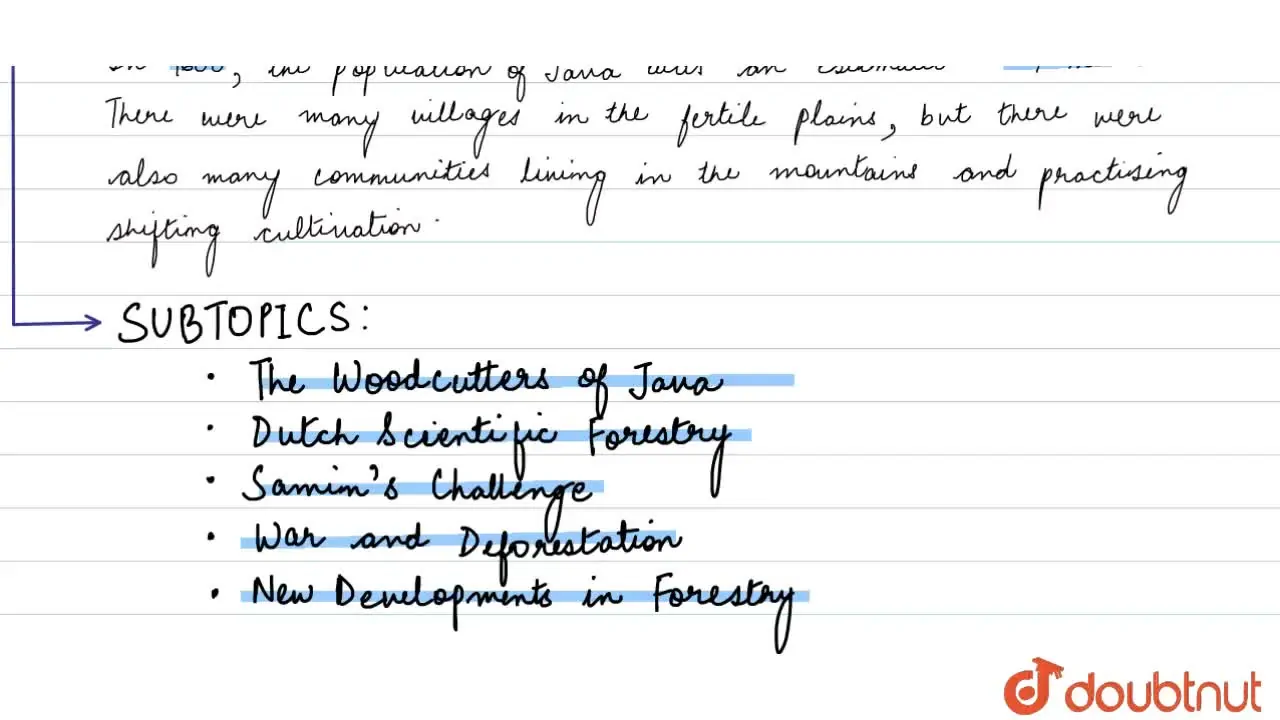 In 1600, the population of Java was an
There were many villages in the fertile plains, but there were
also many communities lining in the mountains and practising
shifting cultivation.
SUBTOPICS:
• The Woodcutters of Java
• Dutch Scientific Forestry
• Samim's Challenge
• War and Deforestation
• New Developments in Forestry
doubtnut